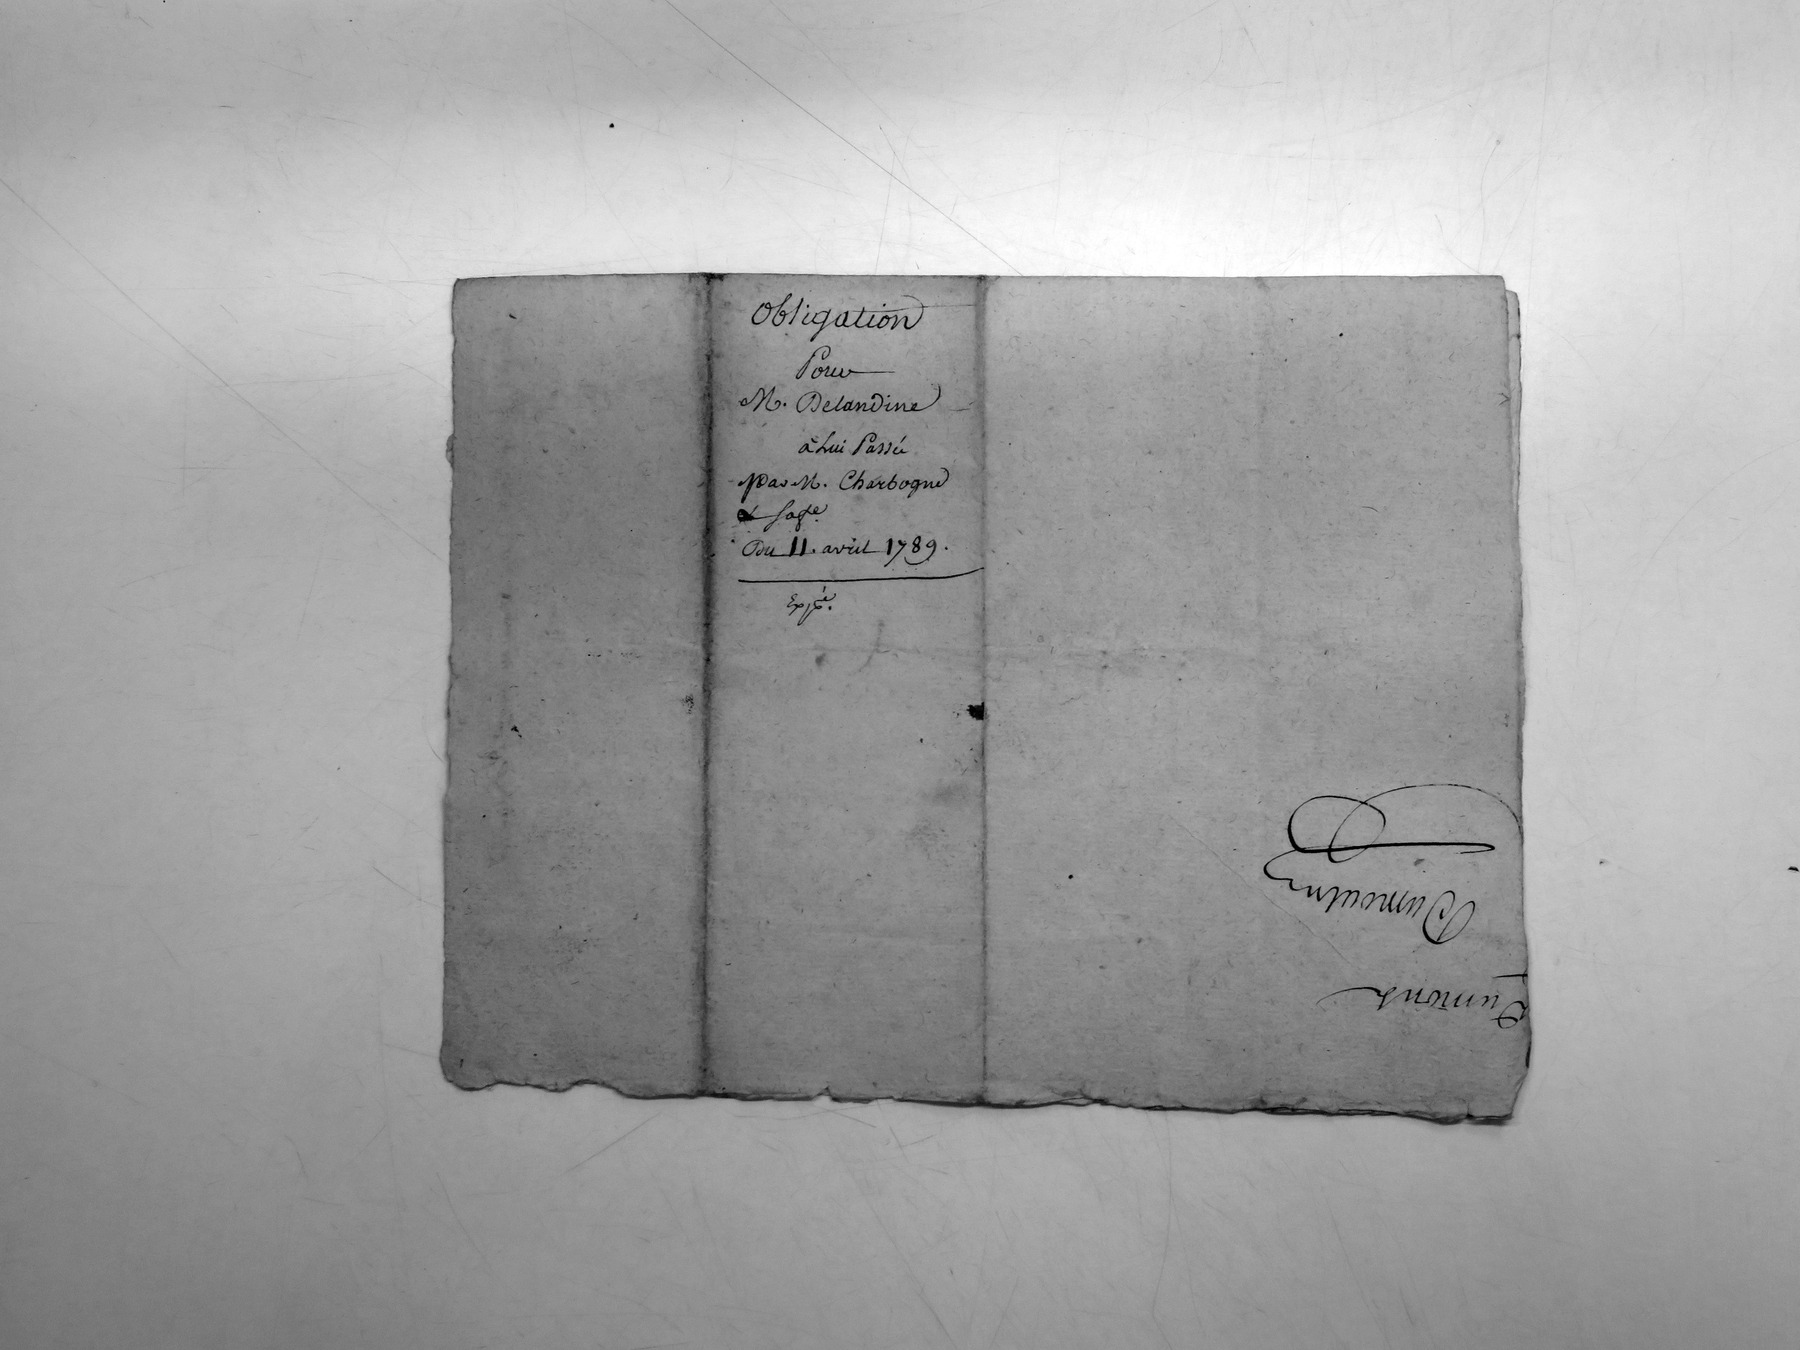 Obligation
Pour
M. Delandine
à Lui Passée
Par M. Charbogne
& sa fe
Du 11. avril 1789.
Expée.
Dumoulin